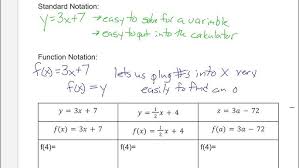 Standard Notation:
y=3x+7 → easy to solve for a variable
→ easy to put into the calculator
Function Notation:
f(x)=3x+7 lets us plug #s into x very
f(x)=y easily to find an o
y = 3x + 7 y = ½x + 4 z = 3a − 72
f(x) = 3x + 7 f(x) = ½x + 4 f(a) = 3a − 72
f(4)= f(4)= f(4)=